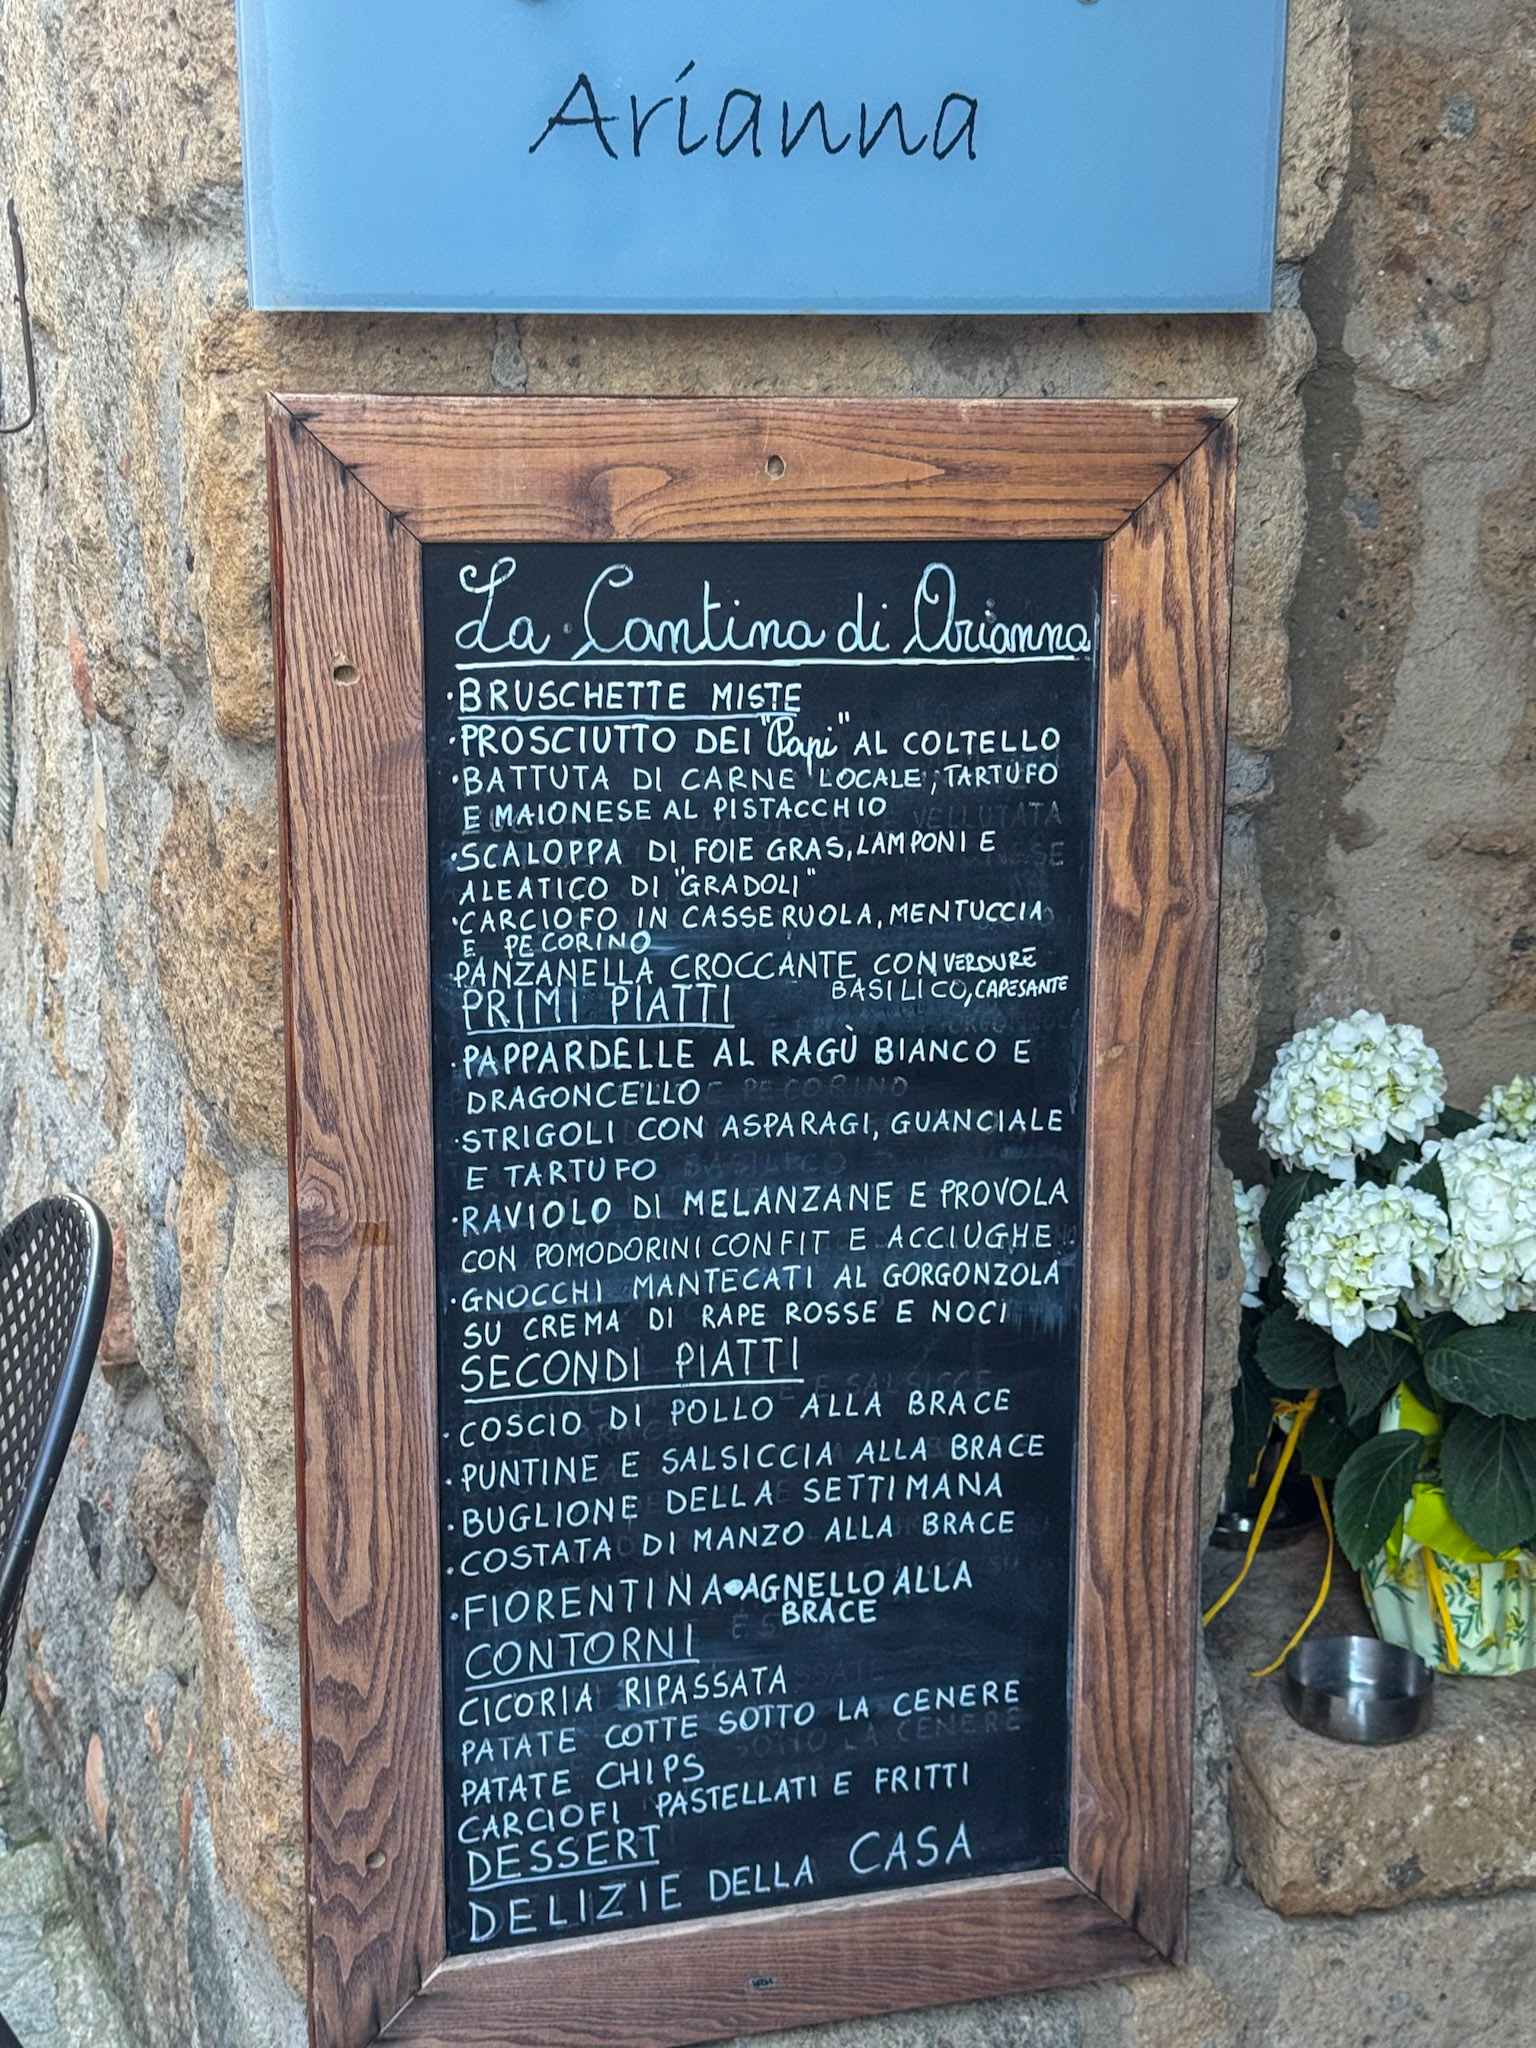 Arianna
La Cantina di Arianna
·BRUSCHETTE MISTE
·PROSCIUTTO DEI "Papi" AL COLTELLO
·BATTUTA DI CARNE LOCALE, TARTUFO
E MAIONESE AL PISTACCHIO
·SCALOPPA DI FOIE GRAS, LAMPONI E
ALEATICO DI "GRADOLI"
·CARCIOFO IN CASSERUOLA, MENTUCCIA
E PECORINO
PANZANELLA CROCCANTE CON VERDURE
BASILICO, CAPESANTE
PRIMI PIATTI
·PAPPARDELLE AL RAGÙ BIANCO E
DRAGONCELLO
·STRIGOLI CON ASPARAGI, GUANCIALE
E TARTUFO
·RAVIOLO DI MELANZANE E PROVOLA
CON POMODORINI CONFIT E ACCIUGHE
·GNOCCHI MANTECATI AL GORGONZOLA
SU CREMA DI RAPE ROSSE E NOCI
SECONDI PIATTI
·COSCIO DI POLLO ALLA BRACE
·PUNTINE E SALSICCIA ALLA BRACE
·BUGLIONE DELLA SETTIMANA
·COSTATA DI MANZO ALLA BRACE
·FIORENTINA •AGNELLO ALLA
BRACE
CONTORNI
CICORIA RIPASSATA
PATATE COTTE SOTTO LA CENERE
PATATE CHIPS
CARCIOFI PASTELLATI E FRITTI
DESSERT
DELIZIE DELLA CASA